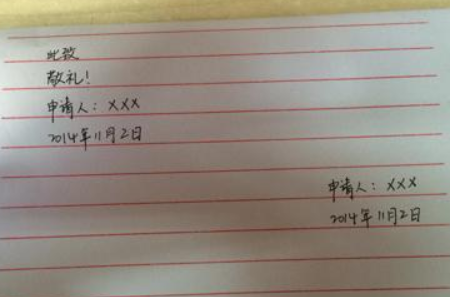 此致
敬礼！
申请人：XXX
2014年11月2日
申请人：XXX
2014年11月2日